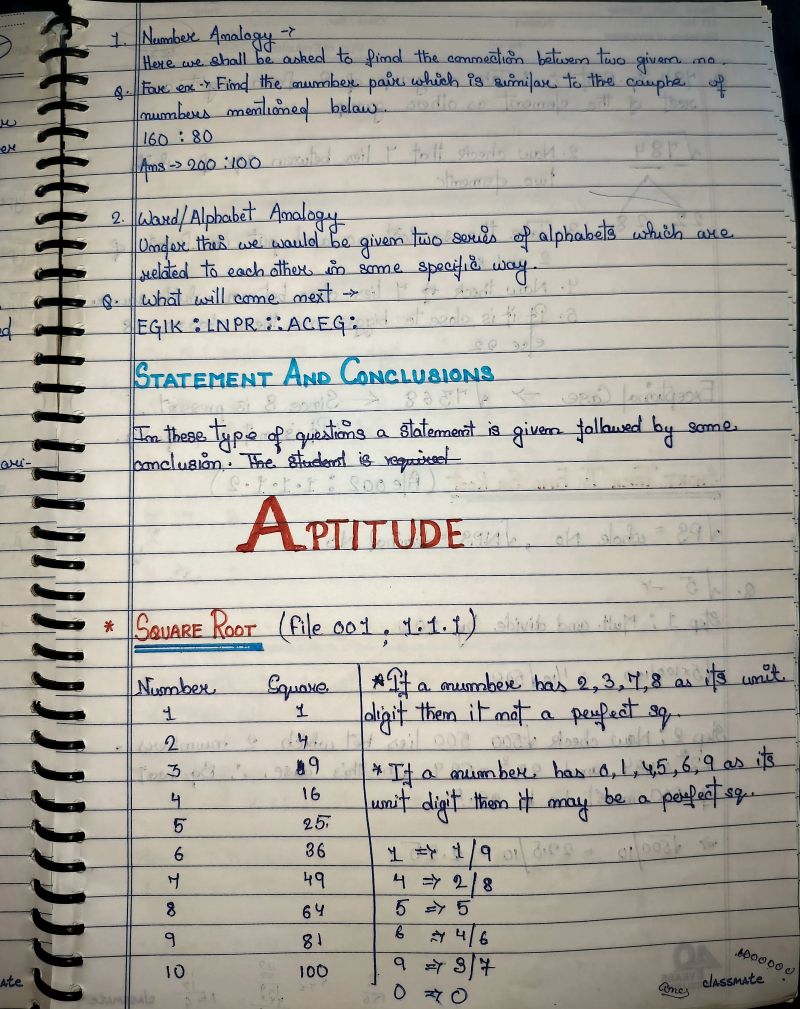 1. Number Analogy →
Here we shall be asked to find the connection between two given no.
Q. For ex → Find the number pair which is similar to the couple of
numbers mentioned below.
160 : 80
Ans → 200 : 100
2. Word/Alphabet Analogy
Under this we would be given two series of alphabets which are
related to each other in some specific way.
Q. What will come next →
EGIK : LNPR :: ACEG :
STATEMENT AND CONCLUSIONS
In these type of questions a statement is given followed by some
conclusion. The student is required
APTITUDE
* SQUARE ROOT (file 001 ; 1.1.1)
Number Square
1 1
2 4
3 9
4 16
5 25
6 36
7 49
8 64
9 81
10 100
* If a number has 2, 3, 7, 8 as its unit
digit then it not a perfect sq.
* If a number has 0, 1, 4, 5, 6, 9 as its
unit digit then it may be a perfect sq.
1 ⇒ 1/9
4 ⇒ 2/8
5 ⇒ 5
6 ⇒ 4/6
9 ⇒ 3/7
0 ⇒ 0
classmate